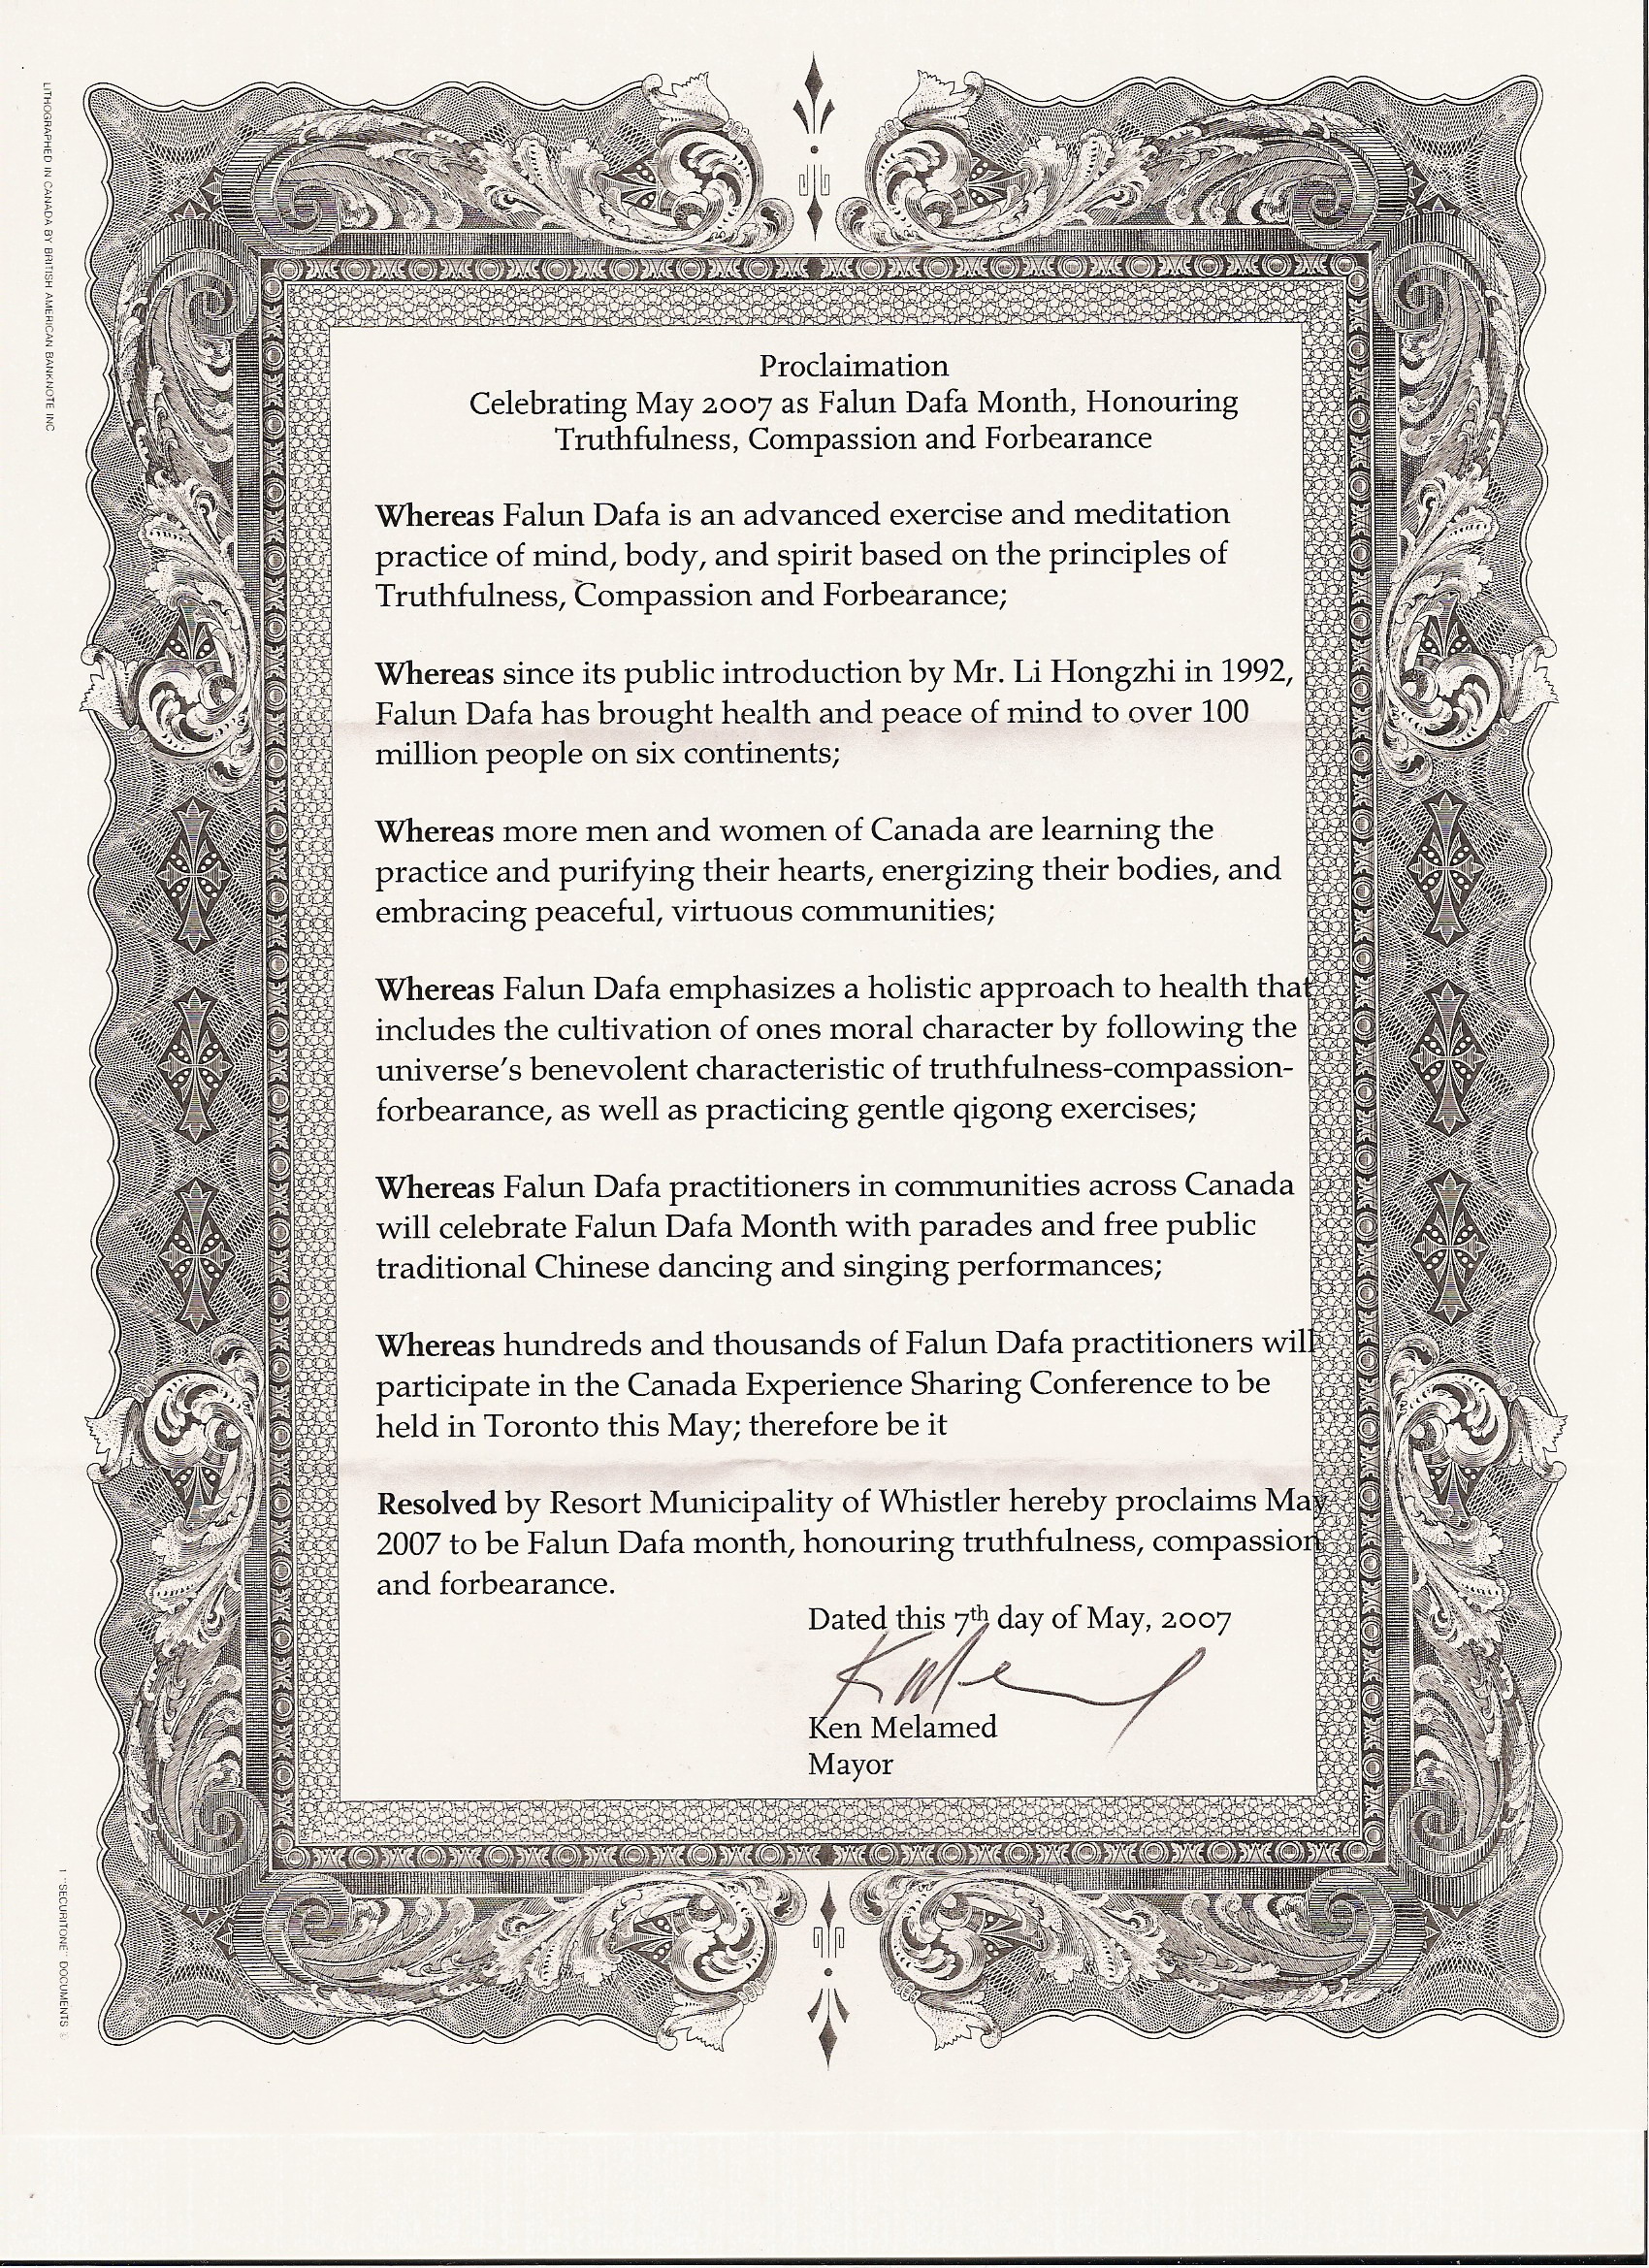 LITHOGRAPHED IN CANADA BY BRITISH AMERICAN BANKNOTE INC
Proclaimation
Celebrating May 2007 as Falun Dafa Month, Honouring
Truthfulness, Compassion and Forbearance
Whereas Falun Dafa is an advanced exercise and meditation
practice of mind, body, and spirit based on the principles of
Truthfulness, Compassion and Forbearance;
Whereas since its public introduction by Mr. Li Hongzhi in 1992,
Falun Dafa has brought health and peace of mind to over 100
million people on six continents;
Whereas more men and women of Canada are learning the
practice and purifying their hearts, energizing their bodies, and
embracing peaceful, virtuous communities;
Whereas Falun Dafa emphasizes a holistic approach to health that
includes the cultivation of ones moral character by following the
universe's benevolent characteristic of truthfulness-compassion-
forbearance, as well as practicing gentle qigong exercises;
Whereas Falun Dafa practitioners in communities across Canada
will celebrate Falun Dafa Month with parades and free public
traditional Chinese dancing and singing performances;
Whereas hundreds and thousands of Falun Dafa practitioners will
participate in the Canada Experience Sharing Conference to be
held in Toronto this May; therefore be it
Resolved by Resort Municipality of Whistler hereby proclaims May
2007 to be Falun Dafa month, honouring truthfulness, compassion
and forbearance.
Dated this 7th day of May, 2007
Ken Melamed
Mayor
1 "SECURITONE" DOCUMENTS ©